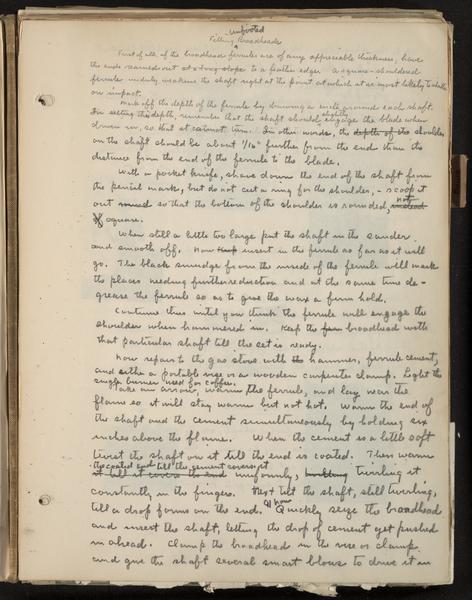 unpivoted
Fitting Broadheads
First of all, if the broadhead ferrules are of any appreciable thickness, have
the ends reamed out at a long slope to a feather edge. A square-shouldered
ferrule unduly weakens the shaft right at the point at which it is most likely to shatter
on impact.
Mark off the depth of the ferrule by drawing a circle around each shaft.
In setting this depth, remember that the shaft should slightly engage the blade when
driven in, so that it cannot turn. In other words, the depth of the shoulder
on the shaft should be about 1/16" further from the end than the
distance from the end of the ferrule to the blade.
With a pocket knife, shave down the end of the shaft from
the pencil mark, but do not cut a ring for the shoulder, - scoop it
out so that the bottom of the shoulder is rounded, not instead
of square.
When still a little too large put the shaft in the sander
and smooth off. Now insert in the ferrule as far as it will
go. The black smudge from the inside of the ferrule will mark
the places needing further reduction and at the same time de-
grease the ferrule so as to give the wax a firm hold.
Continue thus until you think the ferrule will engage the
shoulder when hammered in. Keep the broadhead with
that particular shaft till the set is ready.
Now repair to the gas stove with the hammer, ferrule cement,
and either a portable vise or a wooden carpenter clamp. Light the
single burner used for coffee.
Take an arrow, warm the ferrule, and lay near the
flame so it will stay warm but not hot. Warm the end of
the shaft and the cement simultaneously by holding six
inches above the flame. When the cement is a little soft
twist the shaft on it till the end is coated. Then warm
the coated end till the cement covers it
it till it covers the end uniformly, twirling it
constantly in the fingers. Next tilt the shaft, still twirling,
till a drop forms on the end. Now Quickly seize the broadhead
and insert the shaft, letting the drop of cement get pushed
in ahead. Clamp the broadhead in the vise or clamp
and give the shaft several smart blows to drive it in